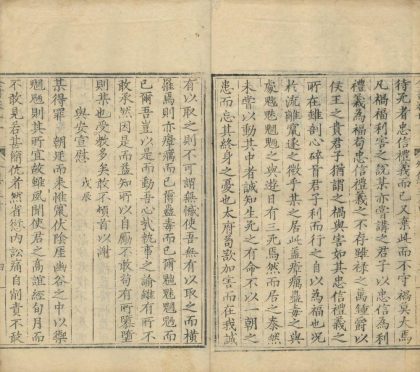 待死者忠信禮義而已又棄此而不守禍莫大焉
凡禍福利害之說某亦嘗講之君子以忠信為利
禮義為福苟忠信禮義之不存雖祿之萬鍾爵以
侯王之貴君子猶謂之禍與害如其忠信禮義之
所在雖剖心碎首君子利而行之自以為福也况
於流離竄逐之微乎某之居此蓋瘴癘蠱毒之與
處魑魅魍魎之與遊日有三死焉然而居之泰然
未嘗以動其中者誠知生死之有命不以一朝之
患而忘其終身之憂也太府苟欲加害而在我誠
有以取之則不可謂無憾使吾無有以取之而橫
罹焉則亦瘴癘而已爾蠱毒而已爾魑魅魍魎而
已爾吾豈以是而動吾心哉執事之諭雖有所不
敢承然因是而益知所以自勵不敢苟有所隳墮
則某也受教多矣敢不頓首以謝
與安宣慰 戊辰
某得罪 朝廷而來惟竄伏陰崖幽谷之中以禦
魍魎則其所宜故雖夙聞使君之高誼經旬月而
不敢見若甚簡伉者然省愆內訟痛自削責不敢